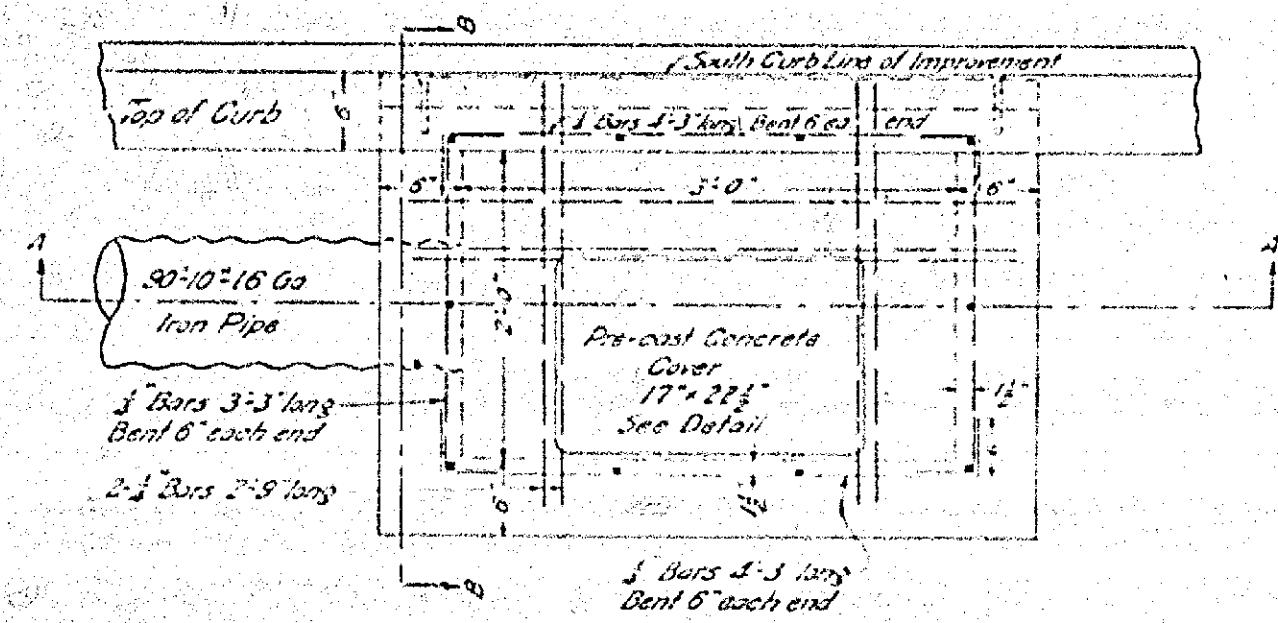 B
South Curb Line of Improvement
Top of Curb
6"
Bars 4'-3" long Bent 6" ea end
6"
3'-0"
6"
A
A
90'-10"-16 Ga
Iron Pipe
2'-0"
Pre-cast Concrete
Cover
17" x 22½"
See Detail
1½"
Bars 3'-3" long
Bent 6" each end
2- Bars 2'-9" long
6"
1½"
Bars 4'-3 long
Bent 6" each end
B